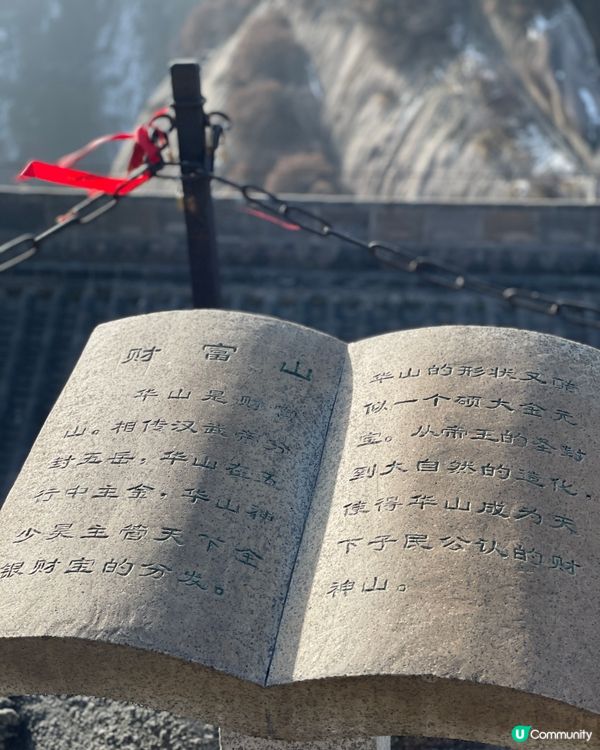 财富山
华山是财富
山。相传汉武帝分
封五岳，华山在五
行中主金，华山神
少昊主管天下金
银财宝的分发。
华山的形状又酷
似一个硕大金元
宝。从帝王的圣封
到大自然的造化，
使得华山成为天
下子民公认的财
神山。
U Community